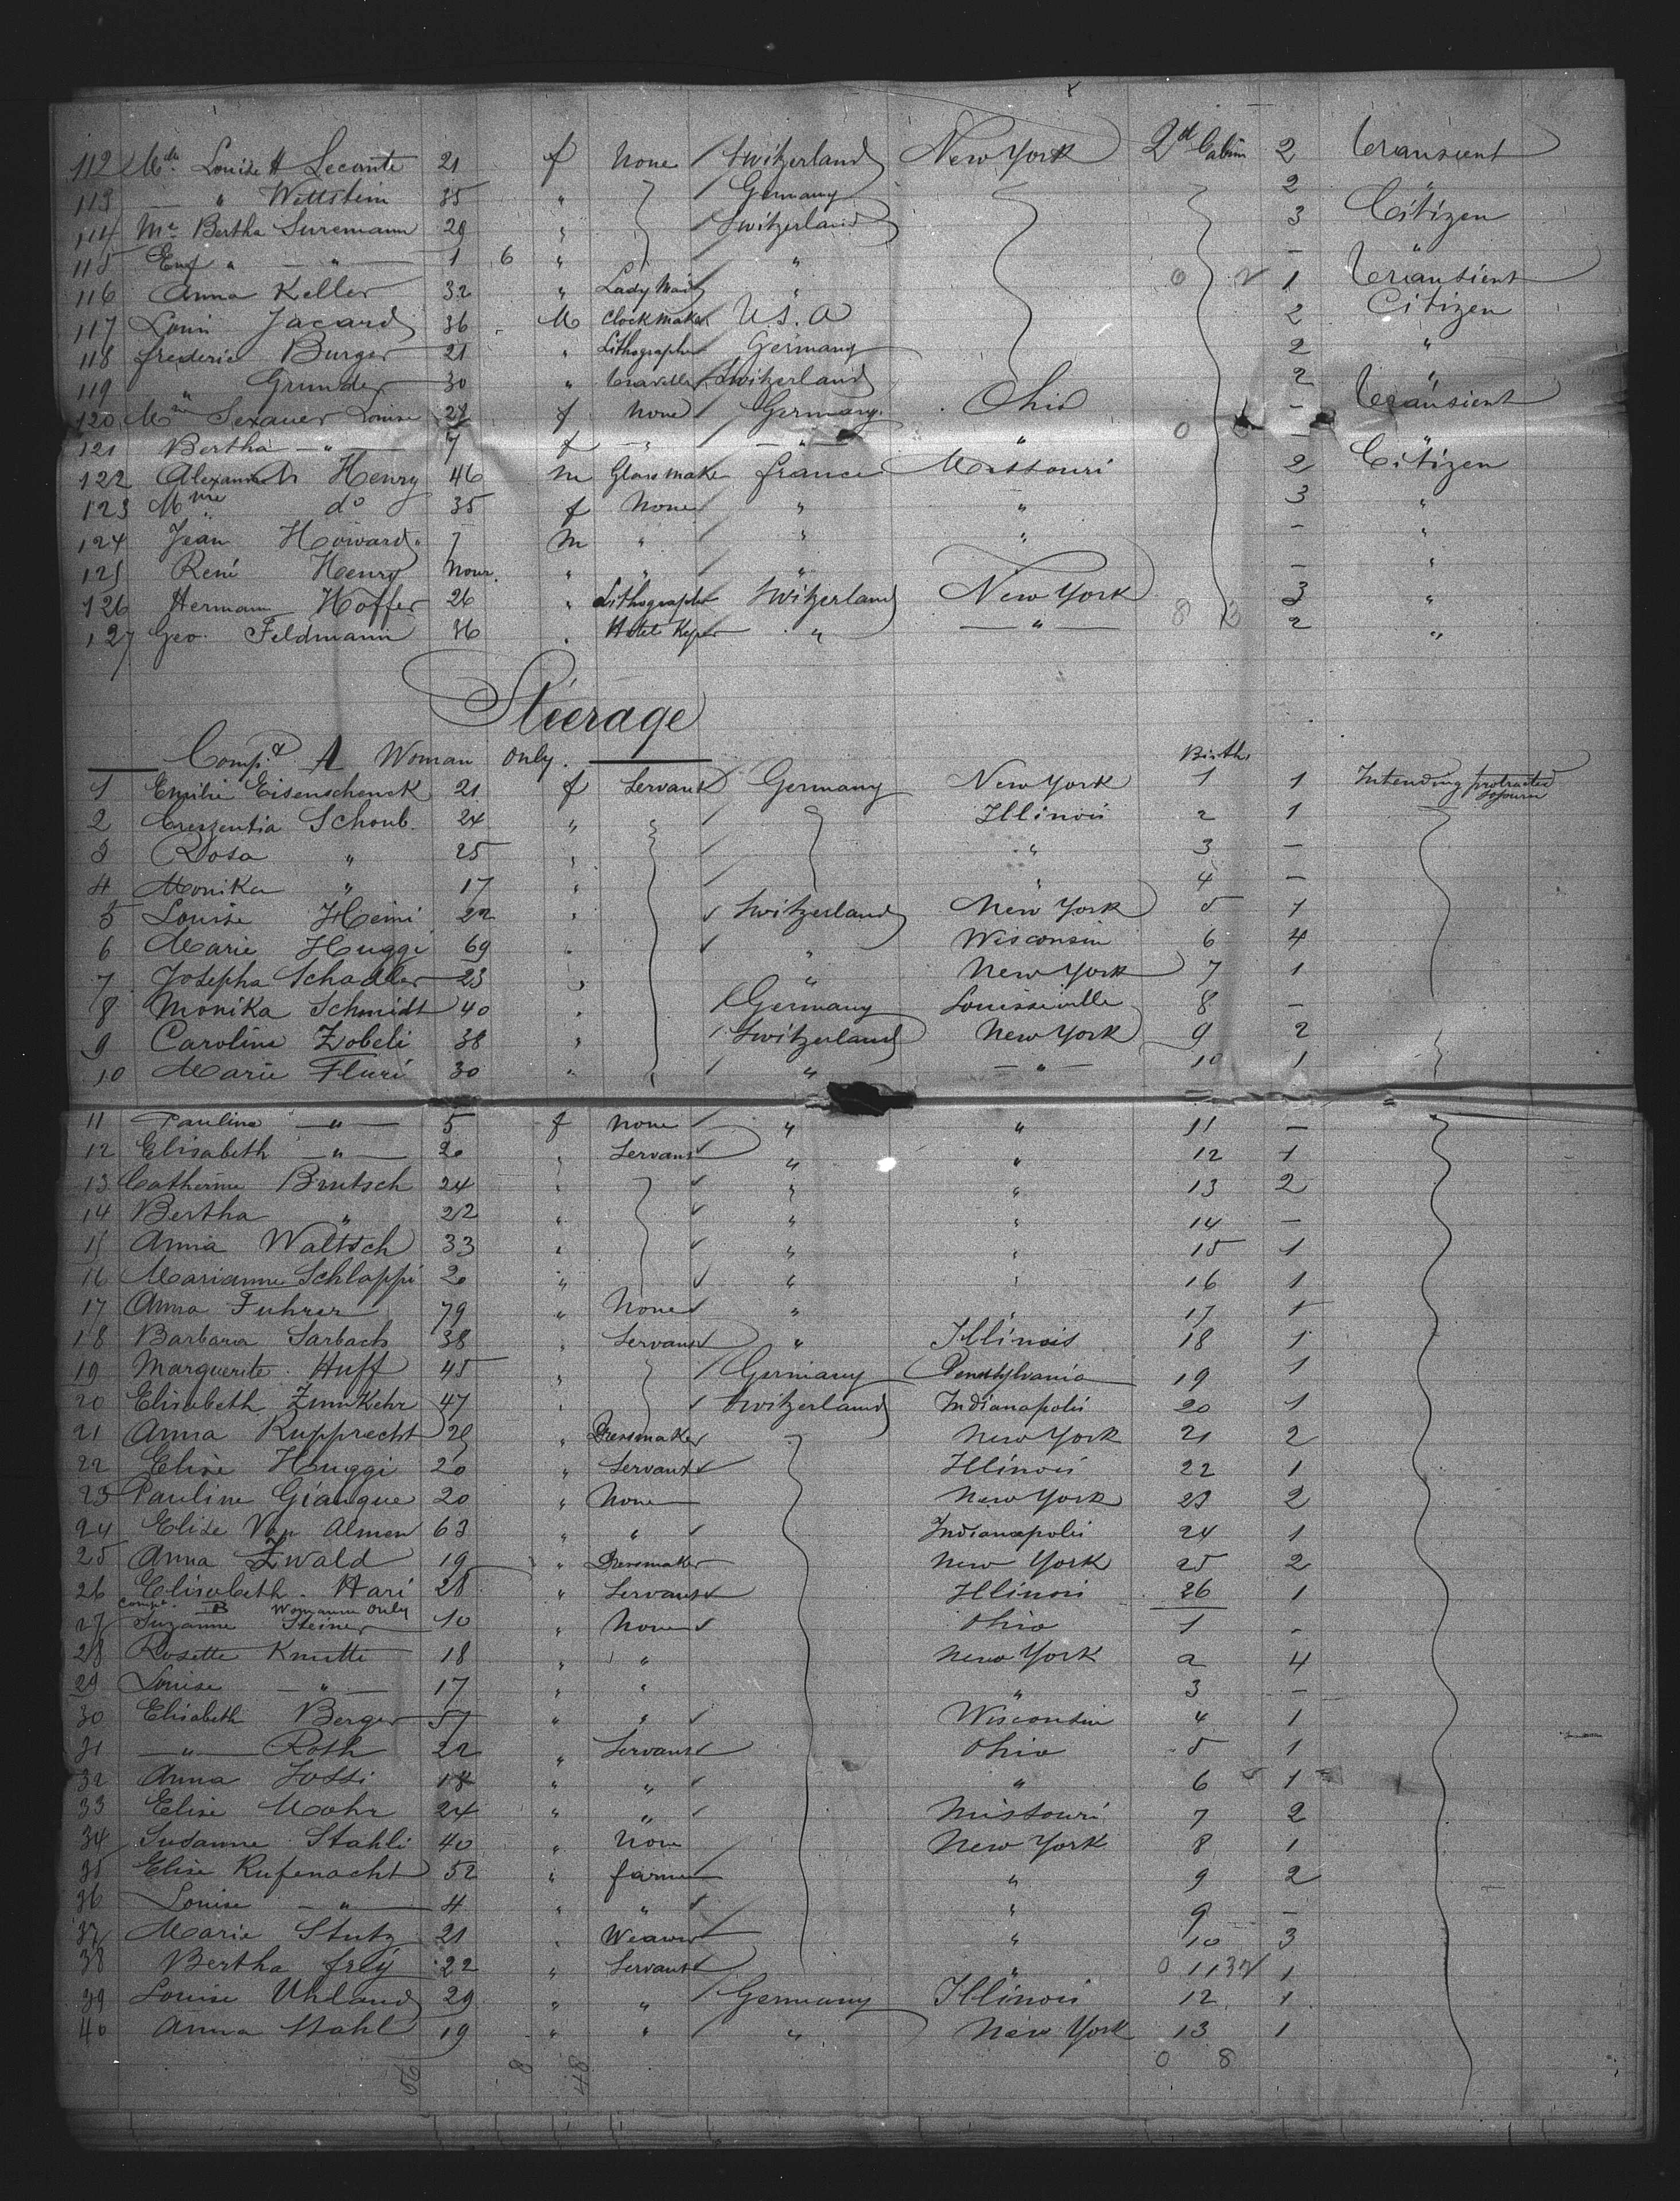 112 Mde Louise A Leconte 21 f None Switzerland New York 2d Cabin 2 Transient
113 — " Wettstein 35 " Germany 2 "
114 Me Bertha Suremann 29 " Switzerland 3 Citizen
115 Enf " — " — 1 6 " " — "
116 Anna Keller 32 " Lady Maid " 1 Transient
117 Louis Jacard 36 M Clockmaker U.S.A 2 Citizen
118 frederic Burger 21 " Lithographer Germany 2 "
119 " Grunder 30 " Traveller Switzerland 2 "
120 Mme Sexauer Louise 27 f None Germany Ohio — Transient
121 Bertha — " — 7 f — " — " — " — "
122 Alexandre Henry 46 m Glassmaker france Missouri 2 Citizen
123 Mme " do 35 f None " " 3 "
124 Jean Howard 7 m " " " — "
125 René Henry Nour. " " " — "
126 Hermann Hoffer 26 " Lithographer Switzerland New York 3 "
127 Geo. Feldmann 36 " Hotel Keper " — " — 2 "
Steerage
Compt A Woman only. Births
1 Emilie Eisenschenck 21 f Servant Germany New York 1 1 Intending protracted sojourn
2 Creszentia Schoub. 24 " Illinois 2 1
3 Rosa " 25 " " 3 —
4 Monika " 17 " " 4 —
5 Louise Heini 22 " Switzerland New York 5 1
6 Marie Huggi 69 " " Wisconsin 6 4
7 Josepha Schadler 23 " " New York 7 1
8 Monika Schmidt 40 " Germany Louisseville 8 —
9 Caroline Zobeli 38 " Switzerland New York 9 2
10 Marie Fluri 30 " " — " — 10 1
11 Pauline — " — 5 f None " " 11 —
12 Elisabeth — " — 20 " Servant " " 12 1
13 Catherine Brutsch 24 " " " 13 2
14 Bertha " 22 " " " 14 —
15 Anna Waltsch 33 " " " 15 1
16 Marianne Schlappi 20 " " " 16 1
17 Anna Fuhrer 79 " None " " 17 1
18 Barbara Sarbach 38 " Servant " Illinois 18 1
19 Marguerite Huff 45 " Germany Pensylvania 19 1
20 Elisabeth Zumkehr 47 " Switzerland Indianapolis 20 1
21 Anna Rupprecht 28 " Dressmaker New York 21 2
22 Elise Huggi 20 " Servant Illinois 22 1
23 Pauline Giauque 20 " None New York 23 2
24 Elise Von Almen 63 " " Indianapolis 24 1
25 Anna Zwald 19 " Dressmaker New York 25 2
26 Elisabeth Hari 28 " Servant Illinois 26 1
Compt B Womanne only
27 Suzanne Steiner 10 " None Ohio 1 -
28 Rosette Knutti 18 " " New York 2 4
29 Louise — " — 17 " " " 3 —
30 Elisabeth Berger 57 " " Wisconsin 4 1
31 — " — Roth 22 " Servant Ohio 5 1
32 Anna Jossi 18 " " " 6 1
33 Elise Mohr 24 " " Missouri 7 2
34 Susanne Stahli 40 " None New York 8 1
35 Elise Rufenacht 52 " farmer " 9 2
36 Louise — " — 4 " " " 9 —
37 Marie Stutz 21 " Weawer " 10 3
38 Bertha frey 22 " Servant " 11 1
39 Louise Uhland 29 " " Germany Illinois 12 1
40 Anna Stahl 19 " " " New York 13 1
56 8 48 0 8